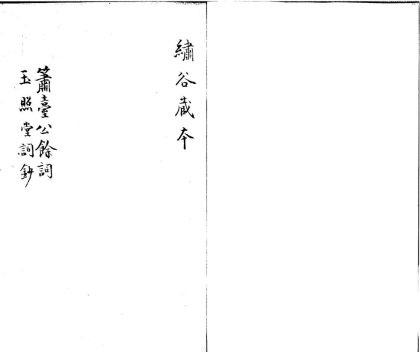 繡谷藏本
簫臺公餘詞
玉照堂詞鈔